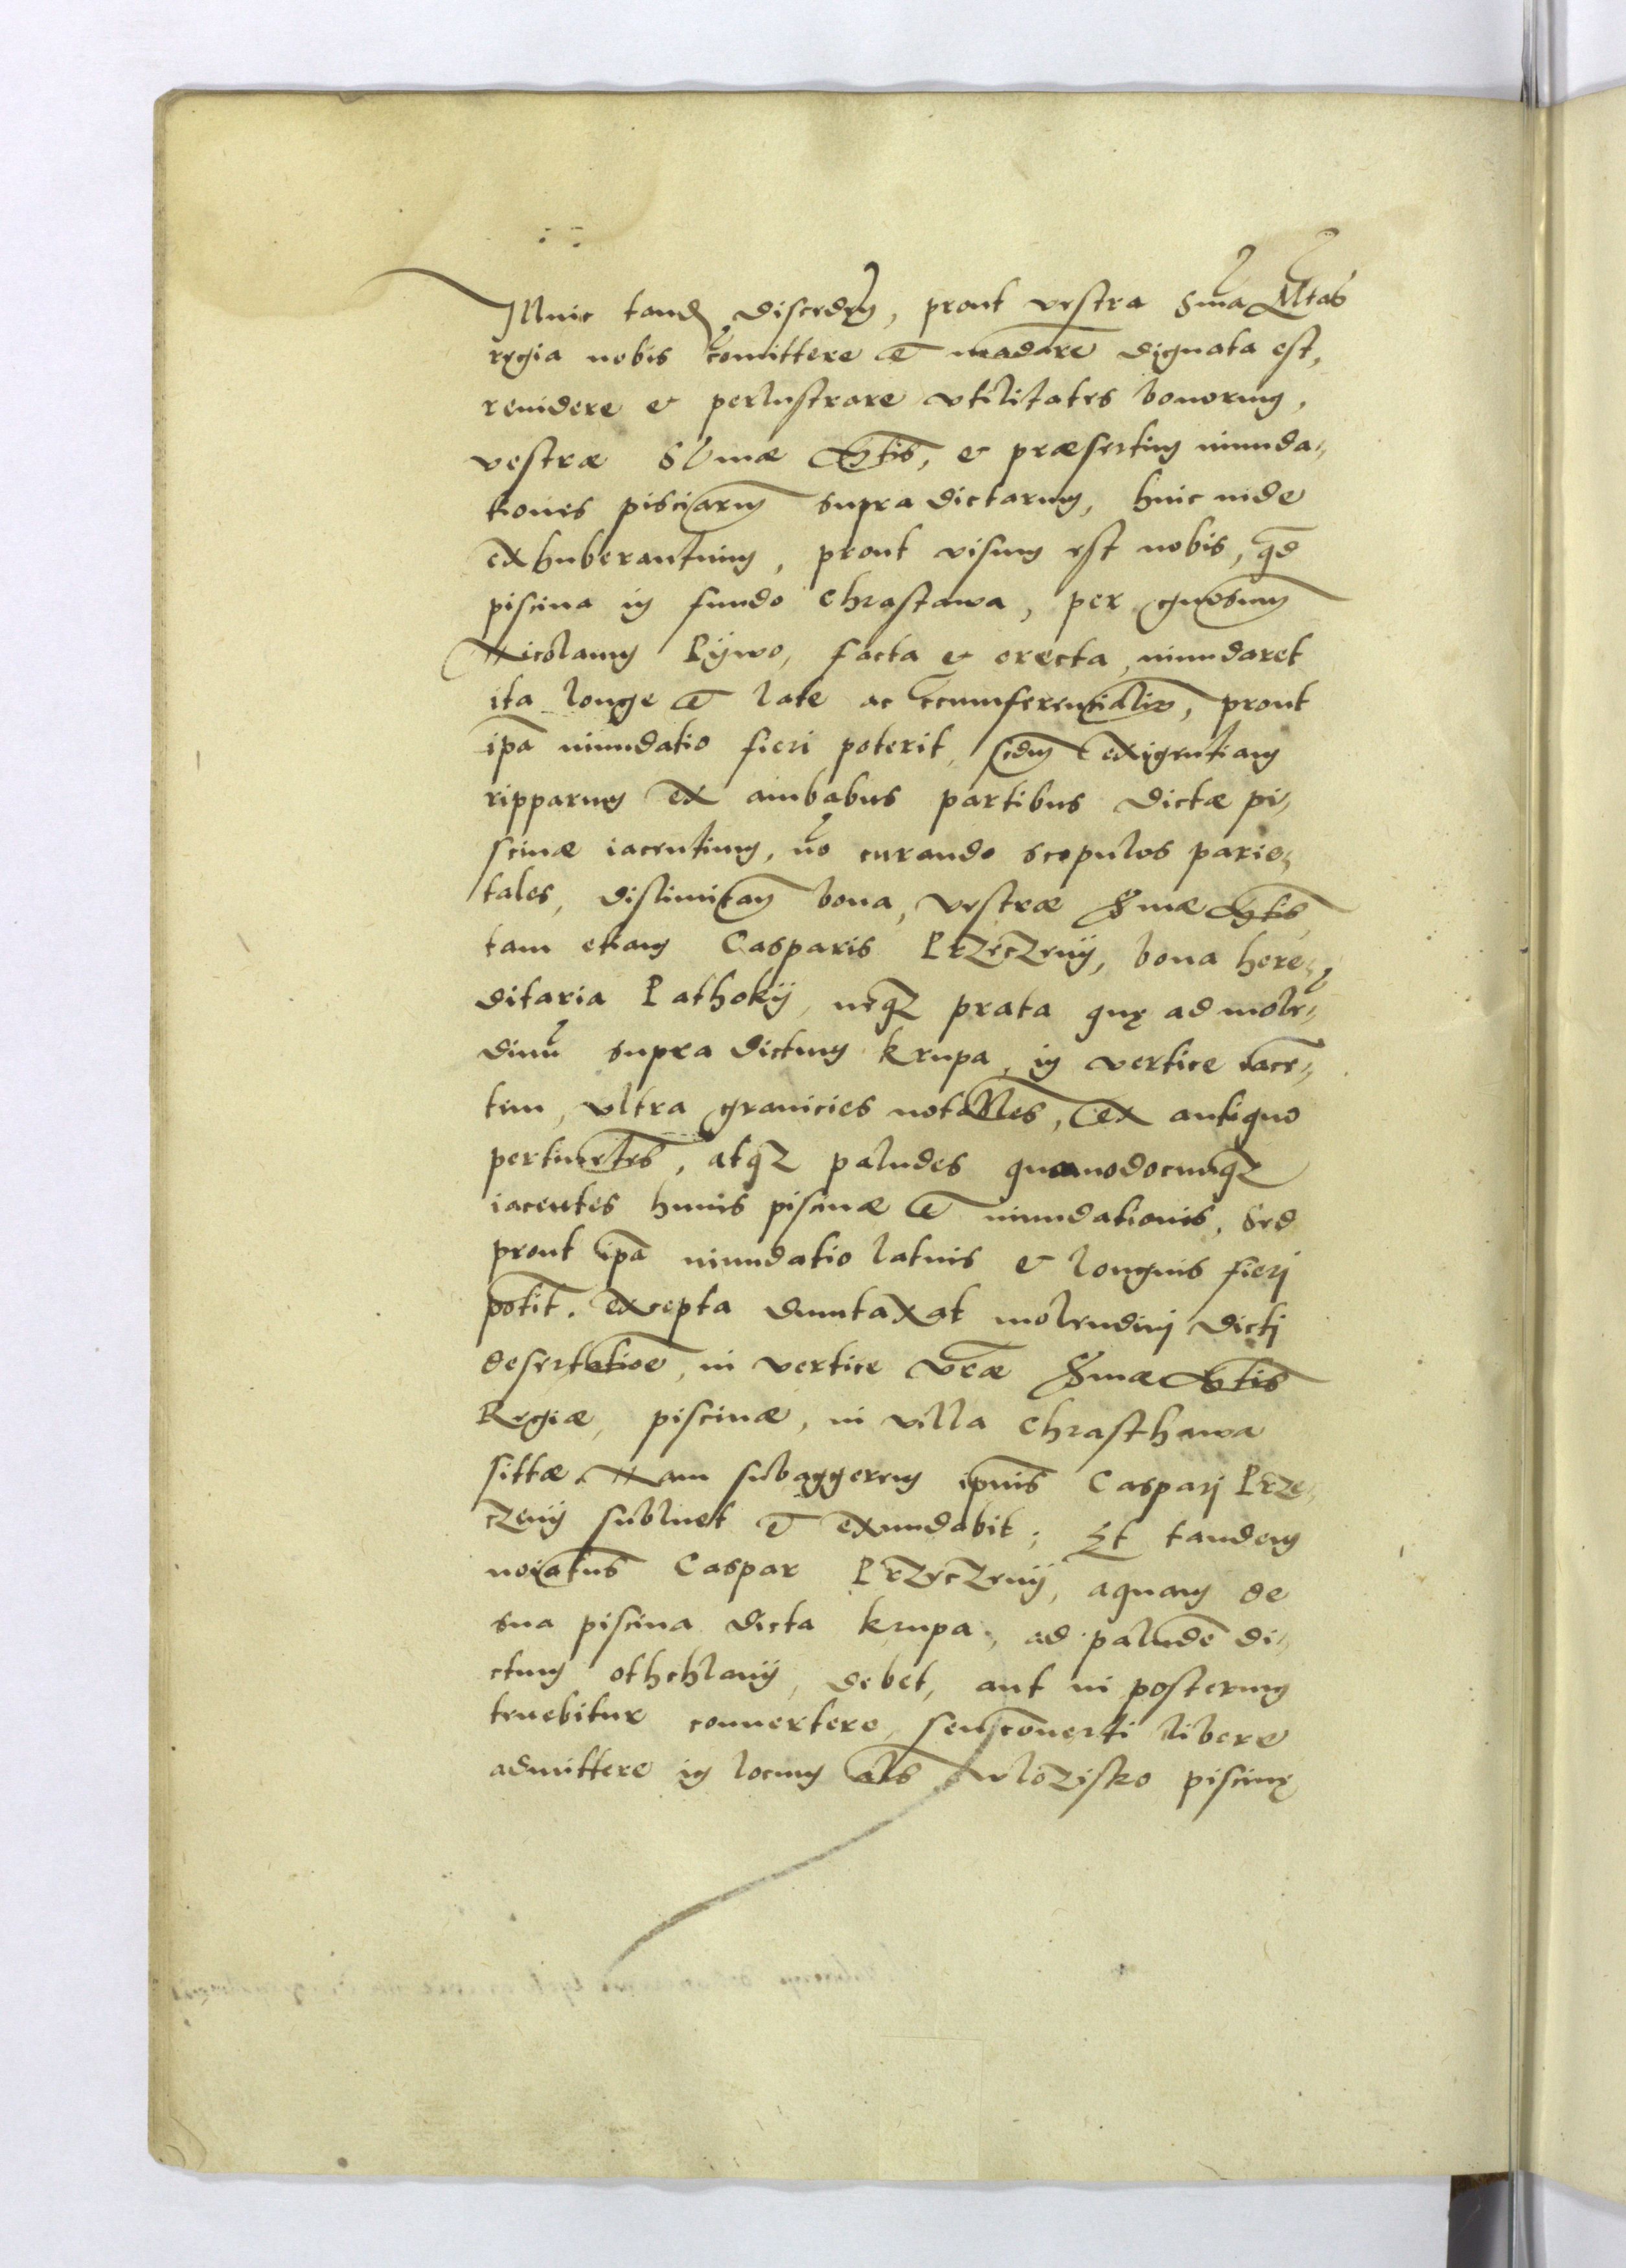 Illuic tandē discedēm, prout vestra Sma Mtas
regia nobis comittere et madare dignata est,
reuidere & perlustrare vtilitates bonorum,
vestræ S[ere]mæ Mtis, & præsertim inunda-
tiones pisciarum supra dictarum, huic inde
exhuberantium, prout visum est nobis, qd
piscina in fundo Chrastawa, per gnosum
Nicolaum Pÿwo, facta & erecta, inundaret
ita longe et late ac circumferentialir, prout
ipa inundatio fieri poterit, scdm exigentiam
ripparum ex ambabus partibus dictæ pi-
scinæ iacentium, no curando scopulos parie-
tales, distinictam bona, vestræ Smæ Mtis
tam etiam Casparis Przeczenÿ, bona here-
ditaria Pathokÿ, neqz prata quę ad mole-
dinu supra dictum Krupa, in vertice iace-
tem, vltra granicies notables, ex antiquo
pertinetes, atqz paludes quomodocunqz
iacentes huius piscinæ et inundationis, Sed
prout ipa inundatio latius & longius fieri
potit. excepta dumtaxat molendini dicti
desertatioe, in vertice vræ Smæ Mtis
Regiæ, piscinæ, in villa Chrasthawa
sittæ. Nam subaggerem ipius Caspari Prze-
czenÿ subluet et exundabit; Et tandem
noiatus Caspar Przeczenÿ, aquam de
sua piscina dicta Krupa, ad paludē di-
ctum othchlanÿ, debet, aut in posterum
tenebitur conuertere, seu conuerti libere
admittere in locum als wlozisko piscinę